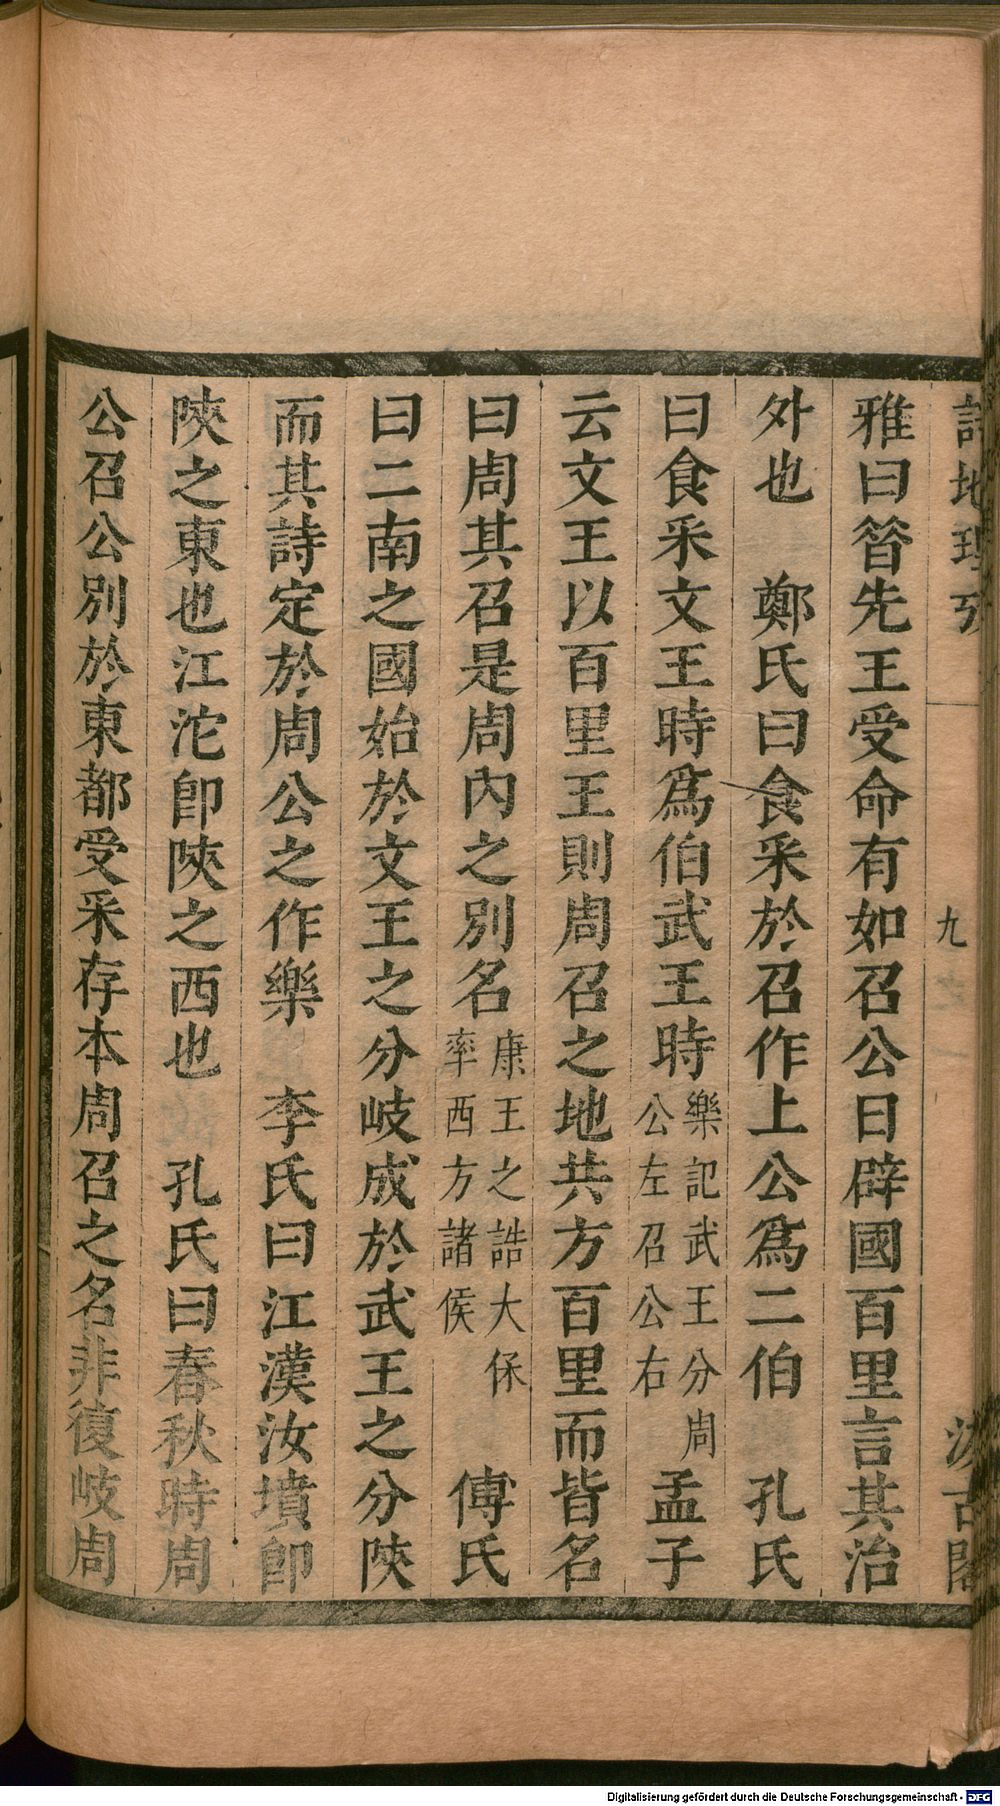 詩地理攷
九
汲古閣
雅曰昔先王受命有如召公日辟國百里言其治
外也　鄭氏曰食采於召作上公爲二伯　孔氏
曰食采文王時爲伯武王時樂記武王分周公左召公右孟子
云文王以百里王則周召之地共方百里而皆名
曰周其召是周內之別名康王之誥大保率西方諸侯　傅氏
曰二南之國始於文王之分岐成於武王之分陝
而其詩定於周公之作樂　李氏曰江漢汝墳卽
陝之東也江沱卽陝之西也　孔氏曰春秋時周
公召公別於東都受采存本周召之名非復岐周
Digitalisierung gefördert durch die Deutsche Forschungsgemeinschaft - DFG